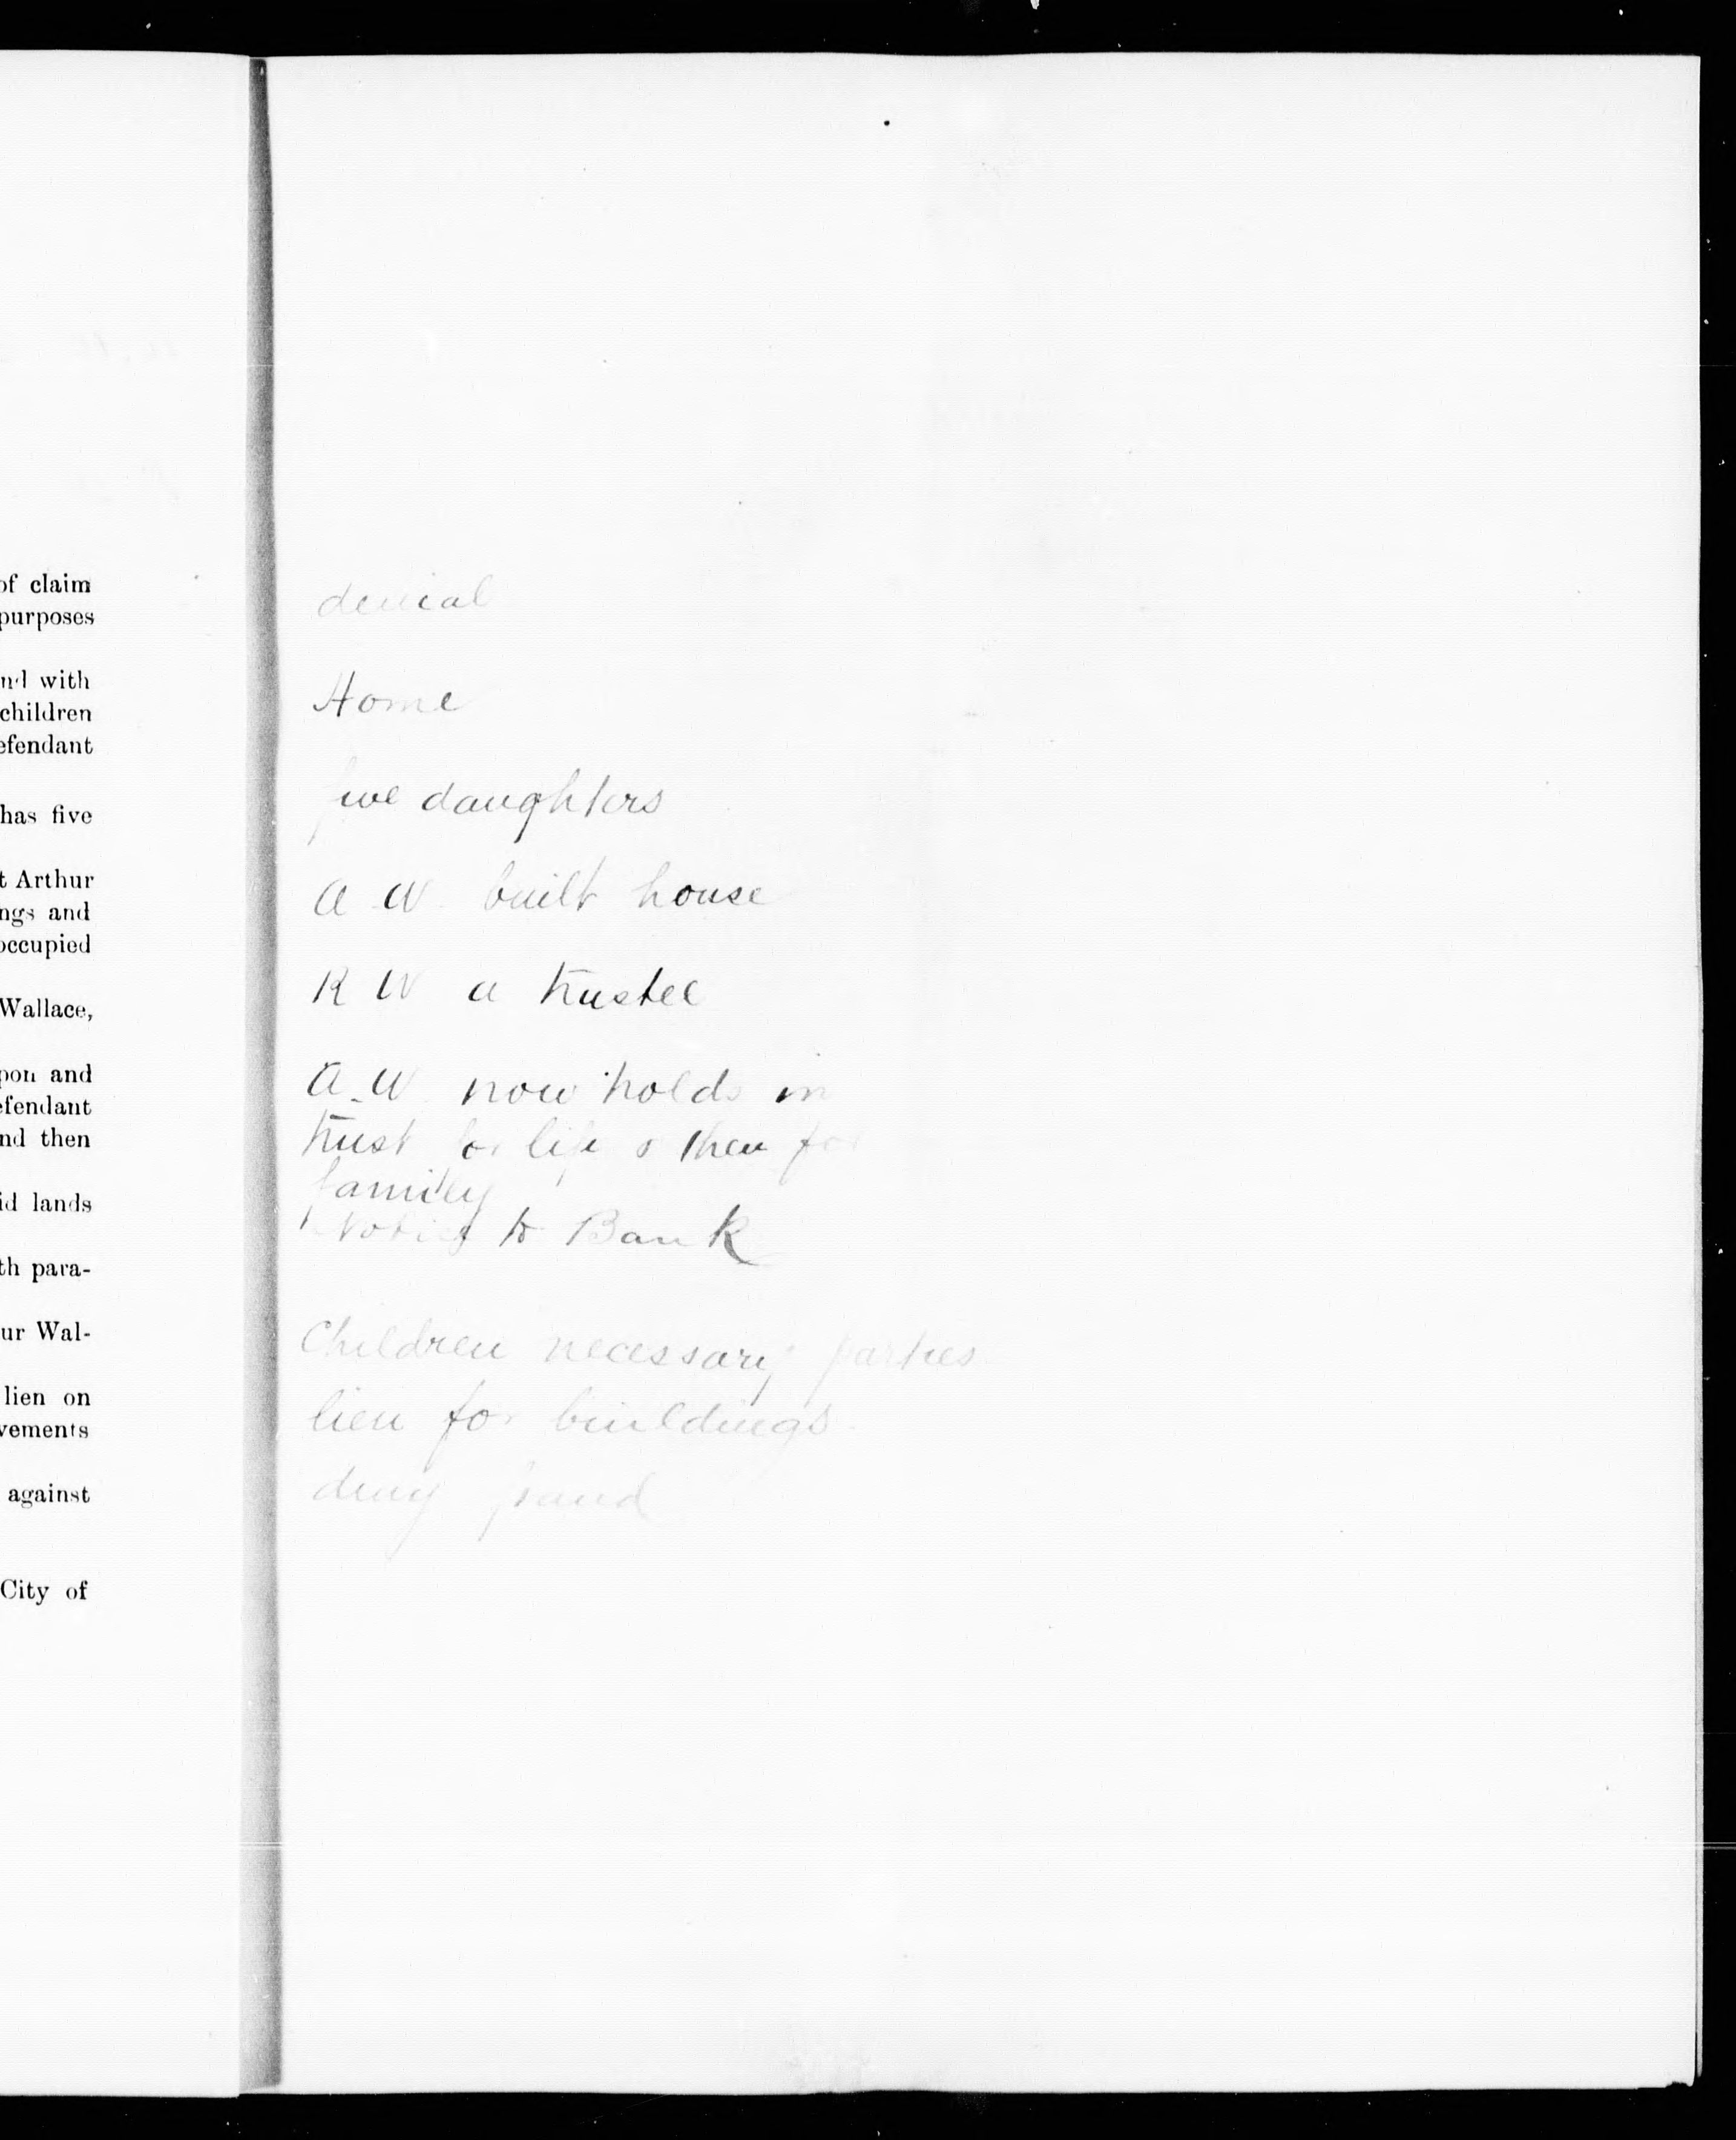 of claim
purposes
nd with
children
efendant
has five
t Arthur
ngs and
occupied
Wallace,
pon and
efendant
nd then
id lands
th para-
ur Wal-
lien on
vements
against
City of
denial
Home
five daughters
A W built house
R W a trustee
A. W now holds in
trust for life & then for
family
Notice to Bank
Children necessary parties
lien for buildings
deny fraud